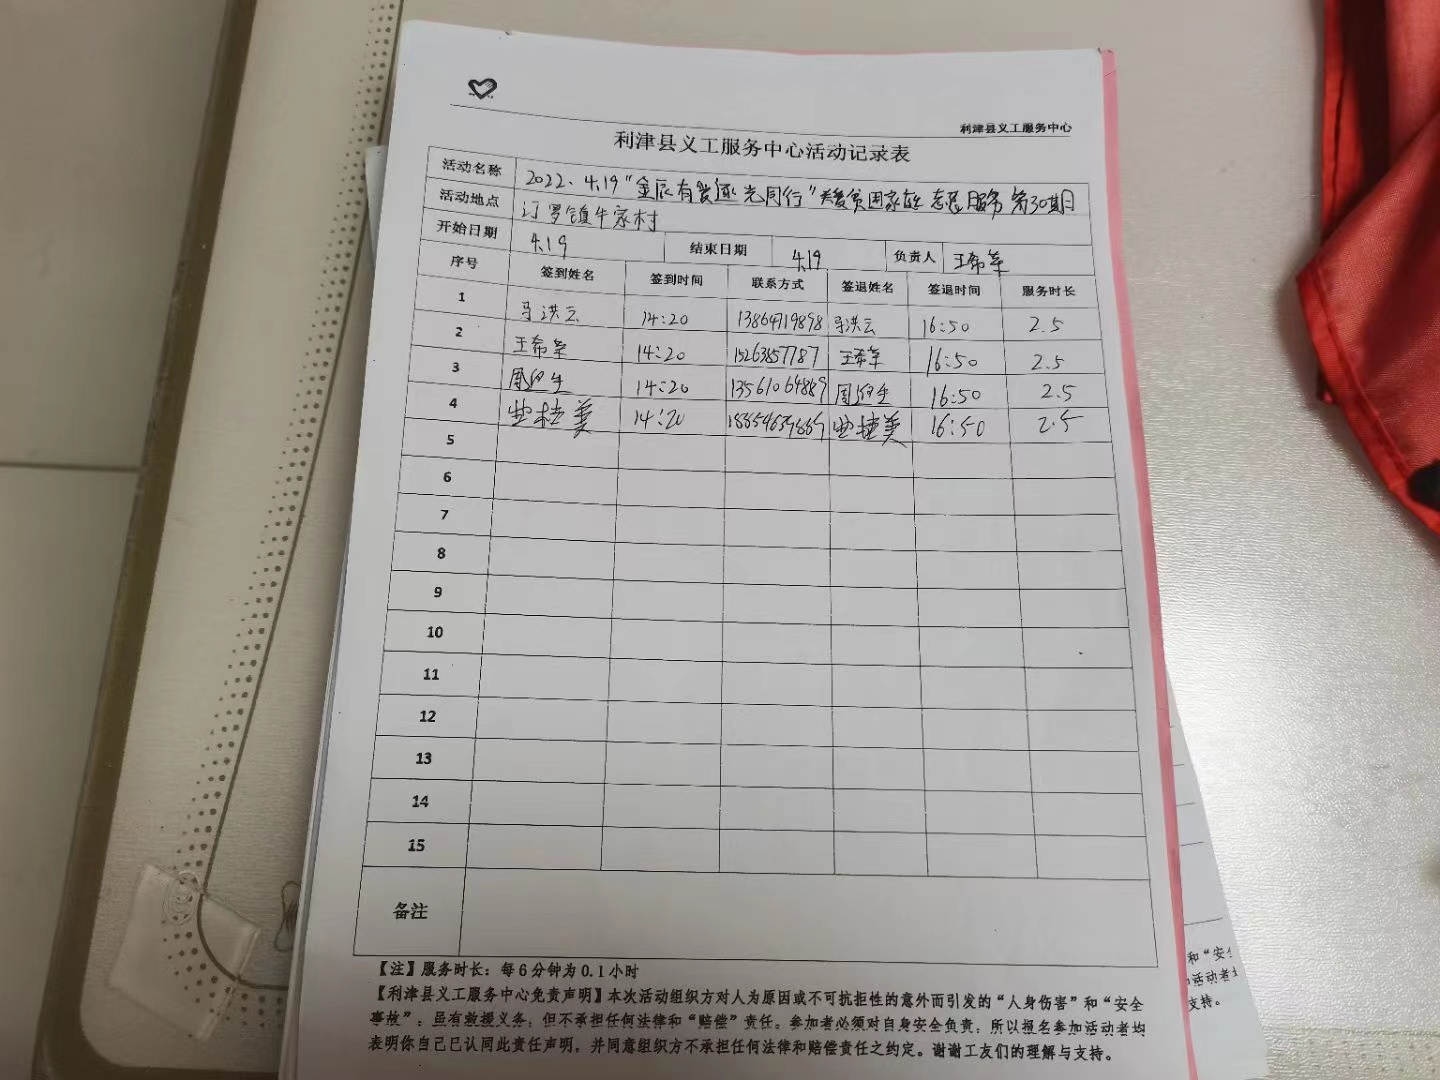 利津县义工服务中心
利津县义工服务中心活动记录表
活动名称 2022.4.19“金辰有爱逐光同行”关爱贫困家庭志愿服务第30期
活动地点 汀罗镇牛家村
开始日期 4.19 结束日期 4.19 负责人 王希军
序号 签到姓名 签到时间 联系方式 签退姓名 签退时间 服务时长
1 马洪云 14:20 13864719898 马洪云 16:50 2.5
2 王希军 14:20 15263857787 王希军 16:50 2.5
3 14:20 13561064889 16:50 2.5
4 14:20 16:50 2.5
5
6
7
8
9
10
11
12
13
14
15
备注
【注】服务时长：每6分钟为0.1小时
【利津县义工服务中心免责声明】本次活动组织方对人为原因或不可抗拒性的意外而引发的“人身伤害”和“安全
事故”，虽有救援义务，但不承担任何法律和“赔偿”责任。参加者必须对自身安全负责，所以报名参加活动者均
表明你自己已认同此责任声明，并同意组织方不承担任何法律和赔偿责任之约定。谢谢工友们的理解与支持。
和“安全
活动者均
支持。